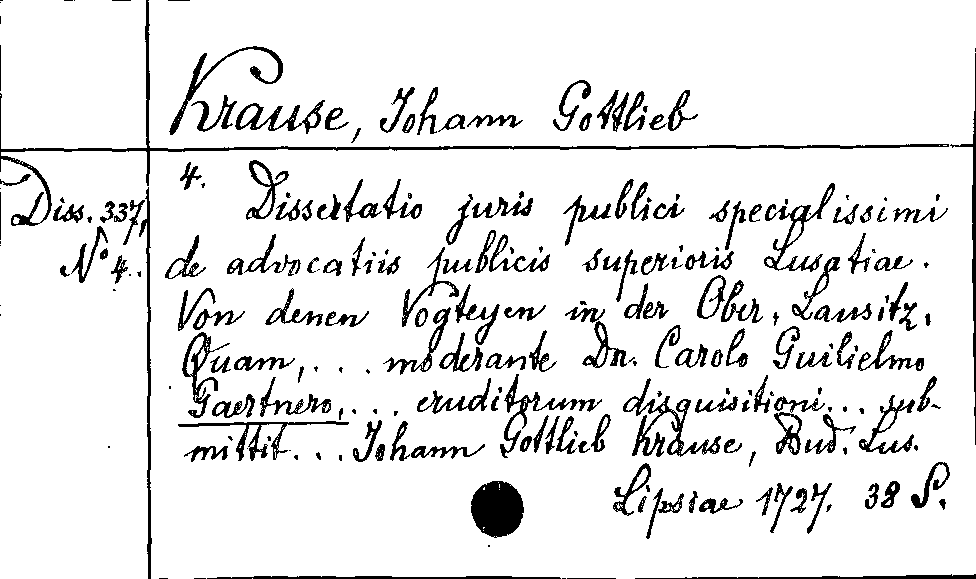 Krause, Johann Gottlieb
Diss. 337,
No 4.
4. Dissertatio juris publici specialissimi
de advocatiis publicis superioris Lusatiae.
Von denen Vogteyen in der Ober, Lausitz,
Quam, . . . moderante Dn. Carolo Guilielmo
Gaertnero, . . . eruditorum disquisitioni . . . sub-
mittit . . . Johann Gottlieb Krause, Bud. Lus.
Lipsiae 1727. 38 S.